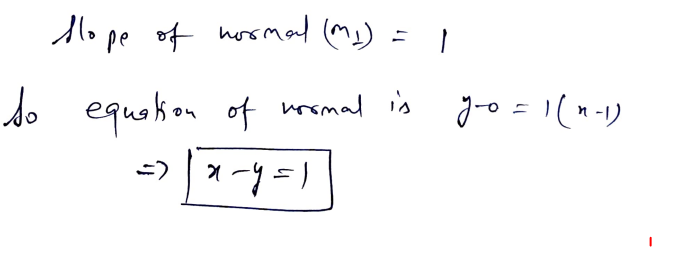 Slope of normal (m⊥) = 1
So equation of normal is y-0 = 1(x-1)
=> x-y=1